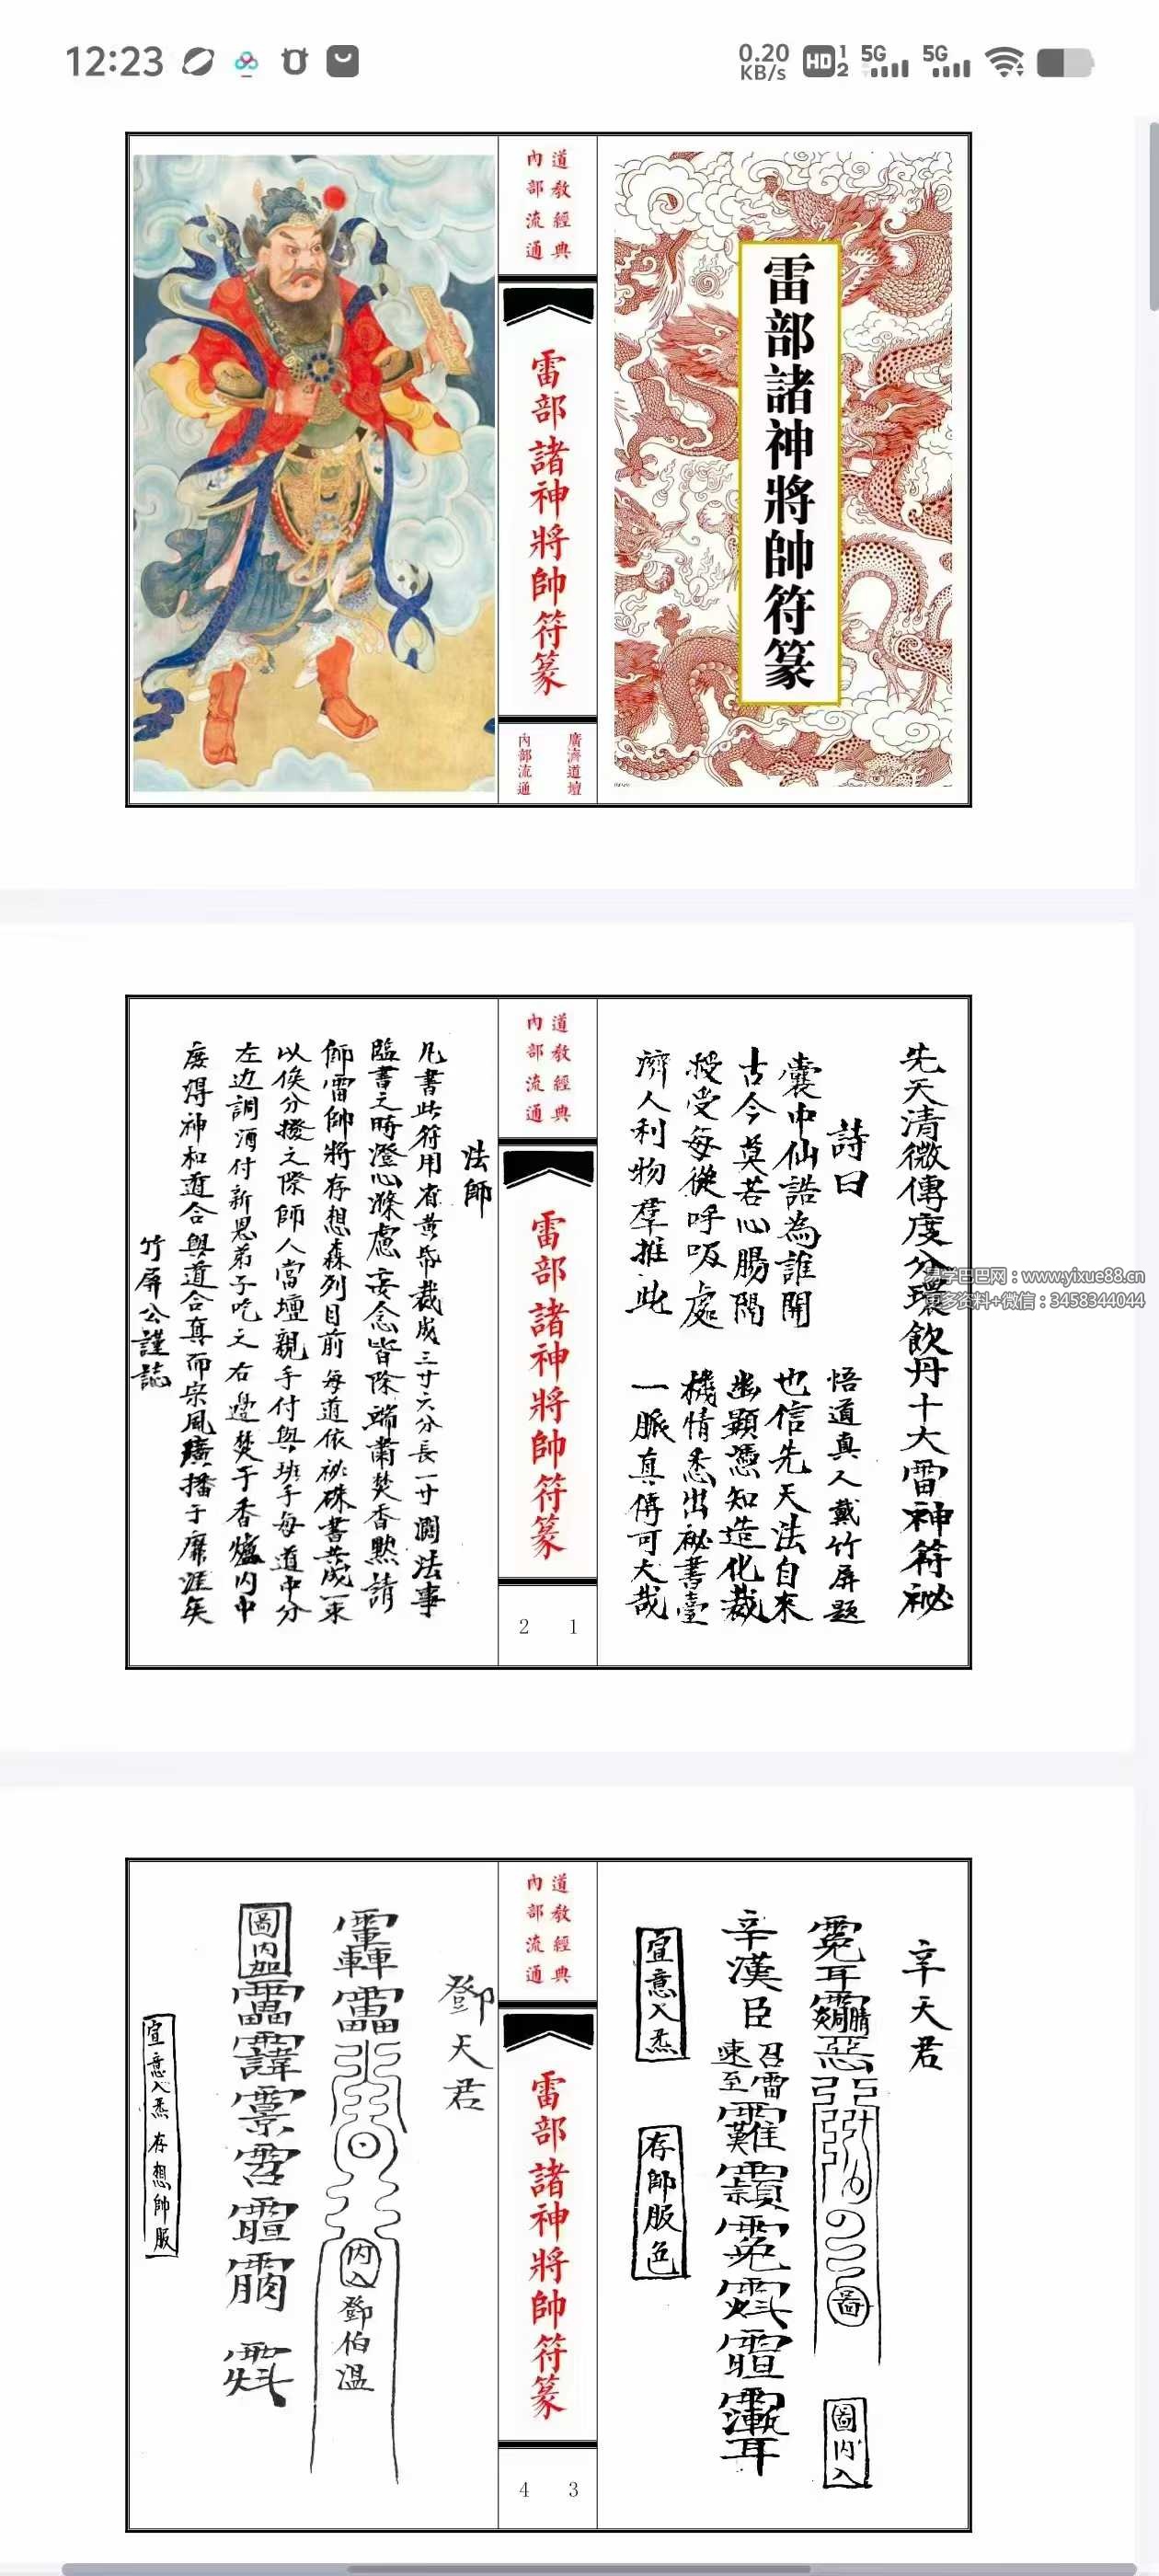 12:23
0.20 KB/s
HD 1 2
5G
5G
道教經典
內部流通
雷部諸神將帥符篆
廣濟道壇
內部流通
雷部諸神將帥符篆
易学巴巴网：www.yixue88.cn
更多资料+微信：3458344044
先天清微傳度分環飲丹十大雷神符祕
詩曰
悟道真人戴竹屏題
囊中仙誥為誰開
也信先天法自來
古今莫若心腸闊
幽顯憑知造化裁
授受每從呼吸處
機情悉出祕書臺
濟人利物群推此
一脈真傳可大哉
道教經典
內部流通
雷部諸神將帥符篆
1
2
法師
凡書此符用省黃帋裁成三寸六分長一寸濶法事
臨書之時澄心滌慮妄念皆除端肅焚香默請
師雷帥將存想森列目前每道依祕硃書茂一來
以俟分撥之際師人當壇親手付與班手每道中分
左边調酒付新恩弟子吃之右邊焚于香爐內中
庶得神和道合與道合真而宗風廣播于靡涯矣
竹屏公謹誌
辛天君
圖內入
辛漢臣
召雷
速至
宣意入炁
存帥服色
道教經典
內部流通
雷部諸神將帥符篆
3
4
鄧天君
內入
鄧伯溫
圖內加
宣意入炁存想帥服